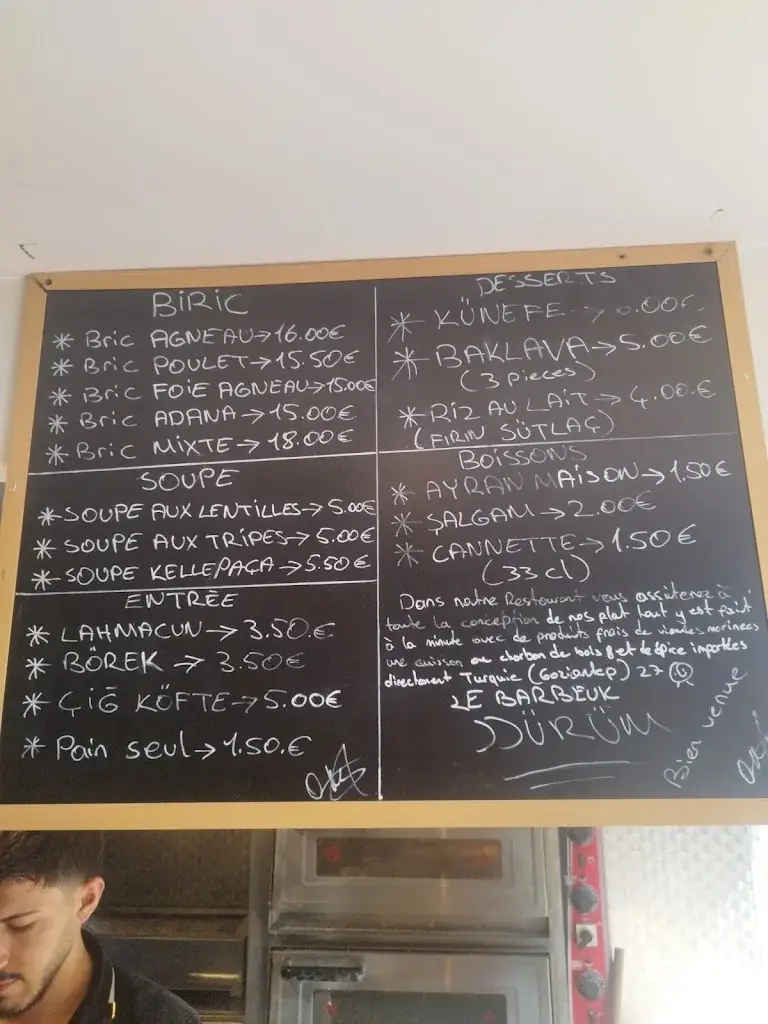 BİRİC
* Bric AGNEAU→16.00€
* Bric POULET→15.50€
* Bric FOIE AGNEAU→15.00€
* Bric ADANA→15.00€
* Bric MIXTE→18.00€
SOUPE
* SOUPE AUX LENTILLES→5.00€
* SOUPE AUX TRIPES→5.00€
* SOUPE KELLEPAÇA→5.50€
ENTRÉE
* LAHMACUN→3.50.€
* BÖREK→3.50€
* ÇİĞ KÖFTE→5.00€
* Pain seul→1.50.€
DESSERTS
* KÜNEFE→
* BAKLAVA→5.00€
(3 pieces)
* RİZ AU LAIT→4.00.€
(FIRIN SÜTLAÇ)
BOISSONS
* AYRAN MAISON→1.50€
* ŞALGAM→2.00€
* CANNETTE→1.50€
(33cl)
Dans notre Restaurant vous assisterez à
toute la conception de nos plat tout y est fait
à la minute avec de produits frais de viandes marinées
une cuisson au charbon de bois et de épice importées
directement Turquie (Gaziantep) 27
LE BARBEUK
DÜRÜM
Bien venue